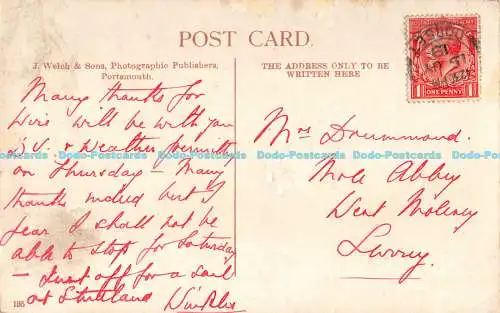 POST CARD.
J. Welch & Sons, Photographic Publishers,
Portsmouth.
THE ADDRESS ONLY TO BE
WRITTEN HERE
ONE PENNY
Many thanks for
Wire will be with you
D.V. & Weather permitting
on Thursday – Many
thanks indeed but I
fear I shall not be
able to stop for Saturday
– Just off for a sail
at
195
Mrs Drummond.
Mole Abbey
West Molesey
Surrey.
Dodo-Postcards Dodo-Postcards Dodo-Postcards Dodo-Postcards